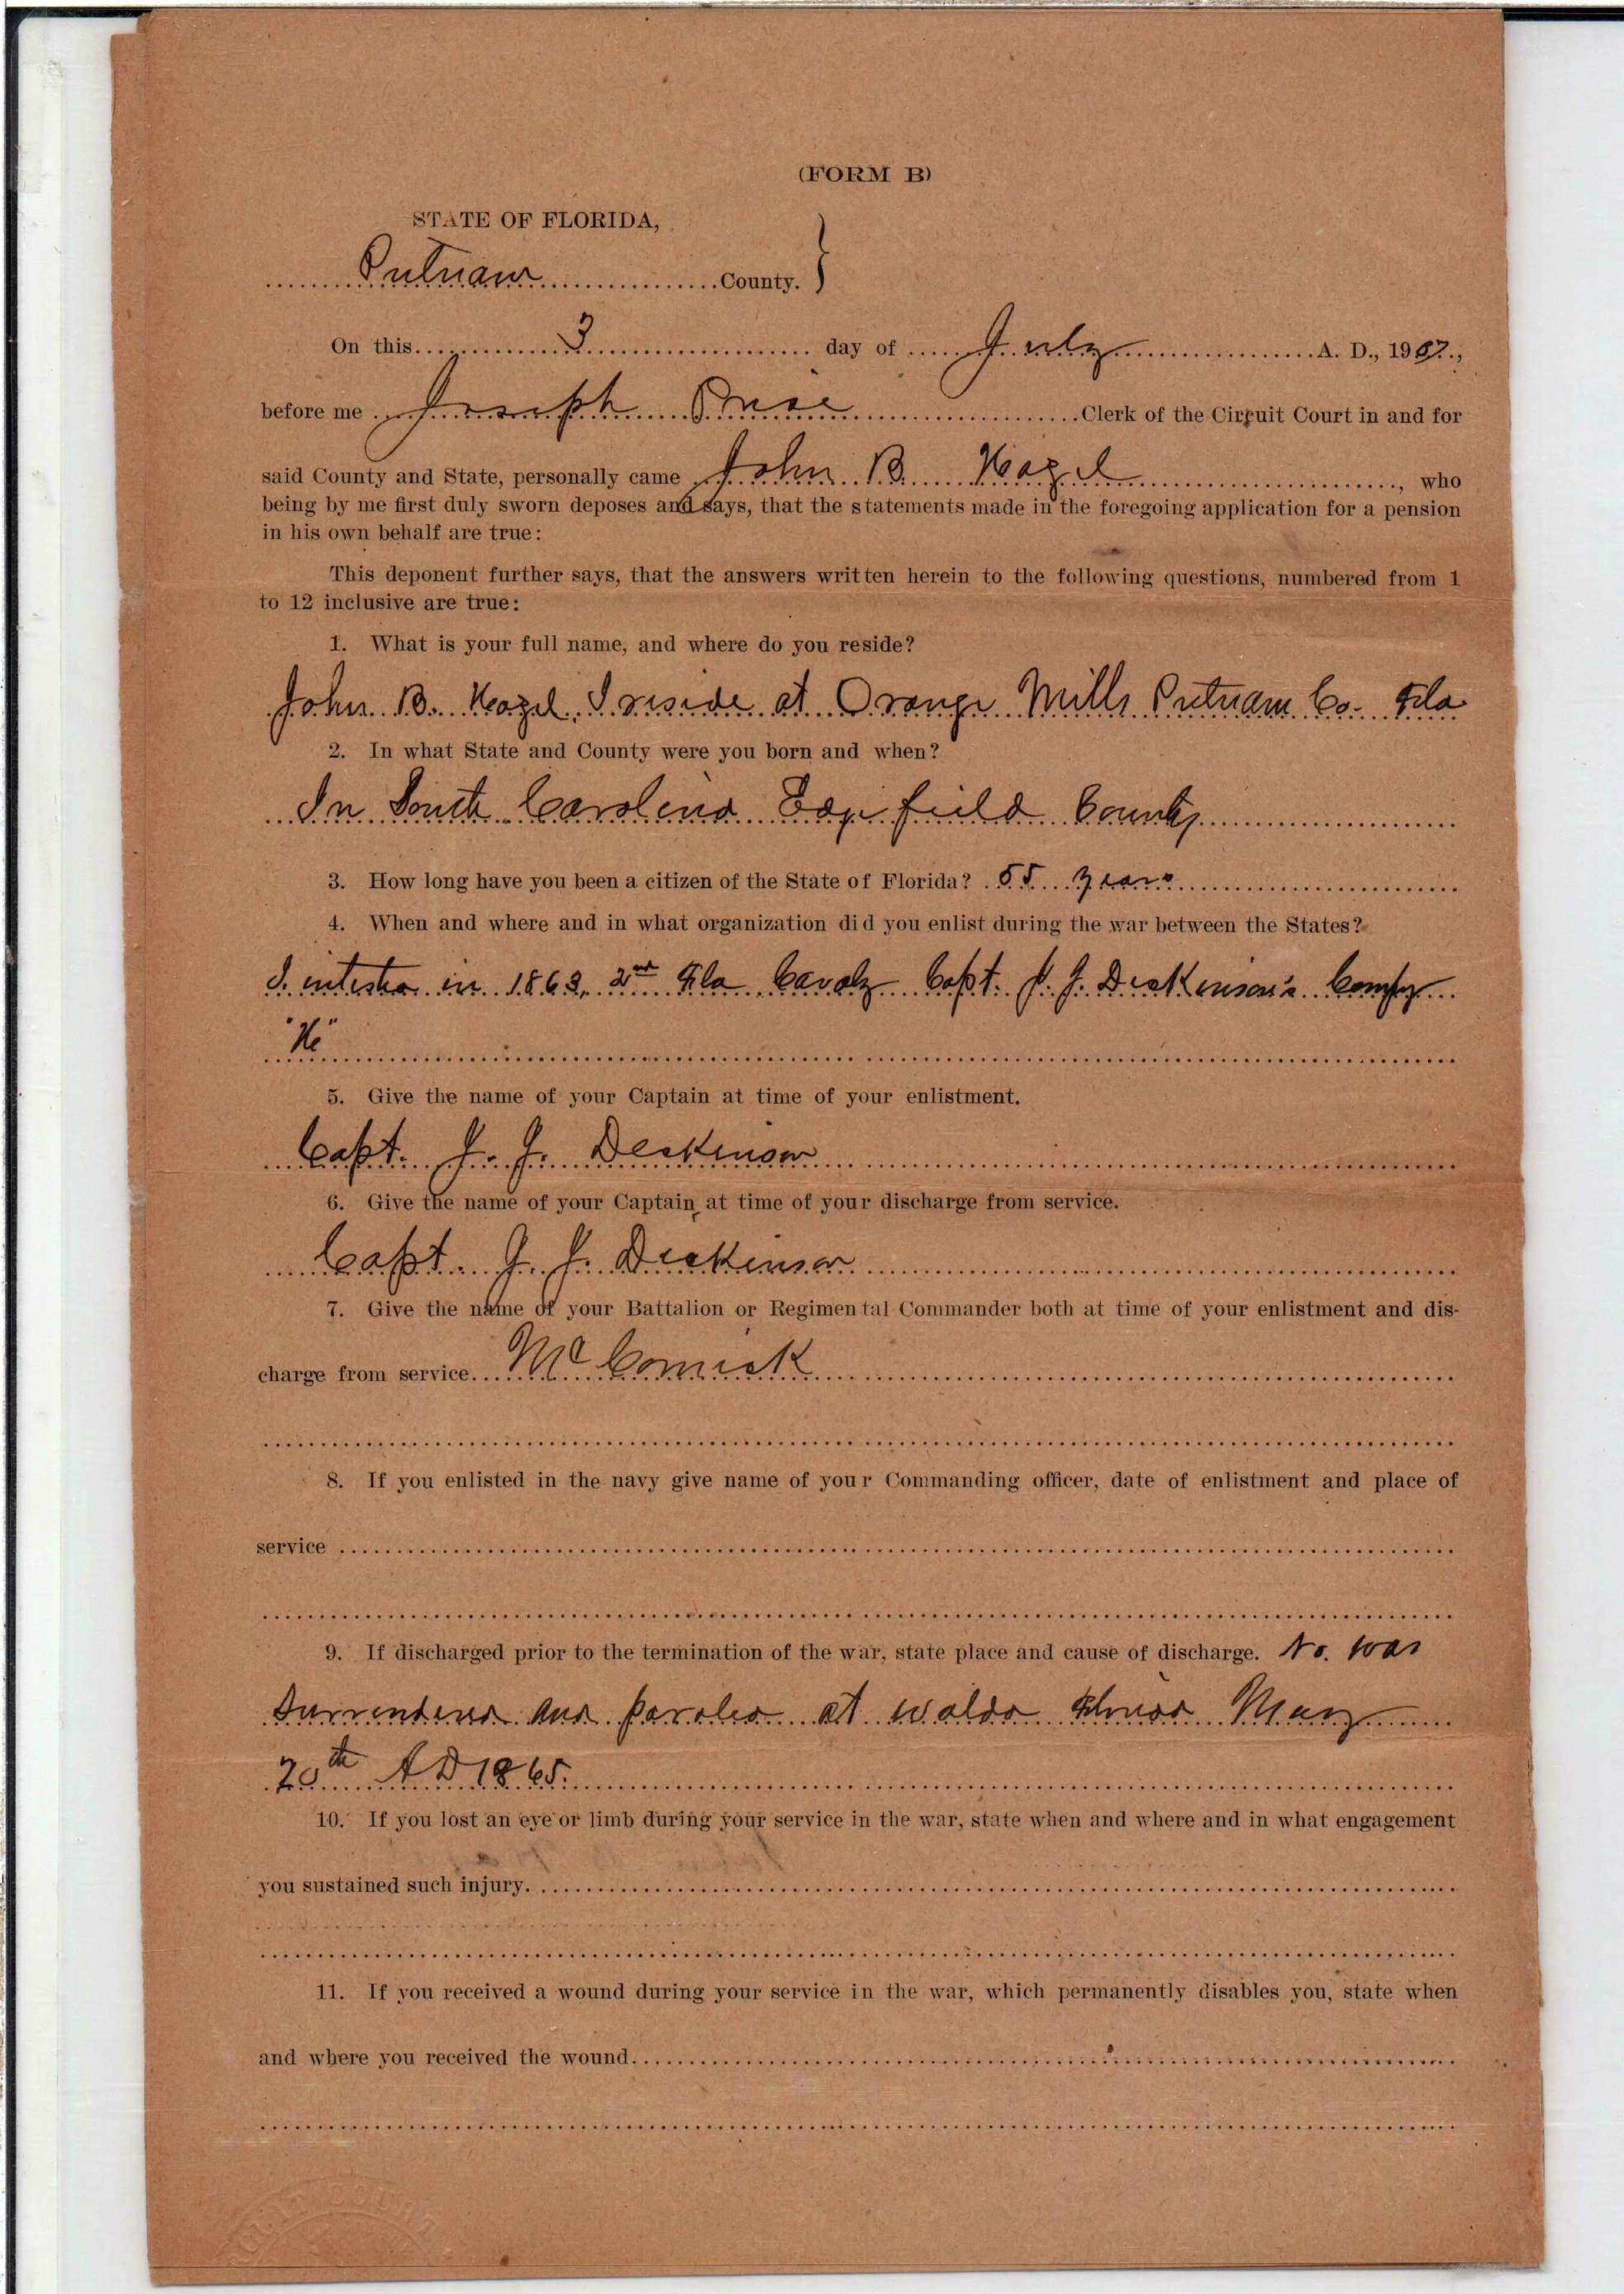 (FORM B)
STATE OF FLORIDA,
Putnam County. }
On this 3 day of July A. D., 1907.,
before me Joseph Price Clerk of the Circuit Court in and for
said County and State, personally came John B. Hazel, who
being by me first duly sworn deposes and says, that the statements made in the foregoing application for a pension
in his own behalf are true:
This deponent further says, that the answers written herein to the following questions, numbered from 1
to 12 inclusive are true:
1. What is your full name, and where do you reside?
John B. Hazel, I reside at Orange Mills Putnam Co. Fla
2. In what State and County were you born and when?
In South Carolina Edgefield County
3. How long have you been a citizen of the State of Florida? 55 years
4. When and where and in what organization did you enlist during the war between the States?
I in 1863, 2nd Fla Cavaly Capt. J. J. Dickinson's Compy
"H"
5. Give the name of your Captain at time of your enlistment.
Capt. J. J. Dickinson
6. Give the name of your Captain at time of your discharge from service.
Capt. J. J. Dickinson
7. Give the name of your Battalion or Regimental Commander both at time of your enlistment and dis-
charge from service. McCormick
8. If you enlisted in the navy give name of your Commanding officer, date of enlistment and place of
service
9. If discharged prior to the termination of the war, state place and cause of discharge. No. was
Surrendered and paroled at Waldo Florida May
20th A D 1865.
10. If you lost an eye or limb during your service in the war, state when and where and in what engagement
you sustained such injury.
11. If you received a wound during your service in the war, which permanently disables you, state when
and where you received the wound.
CUIT COURT